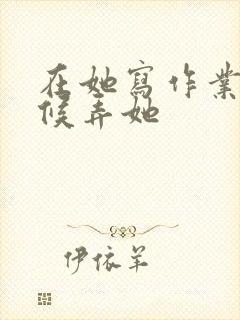 在她寫作業
候弄她
伊依羊